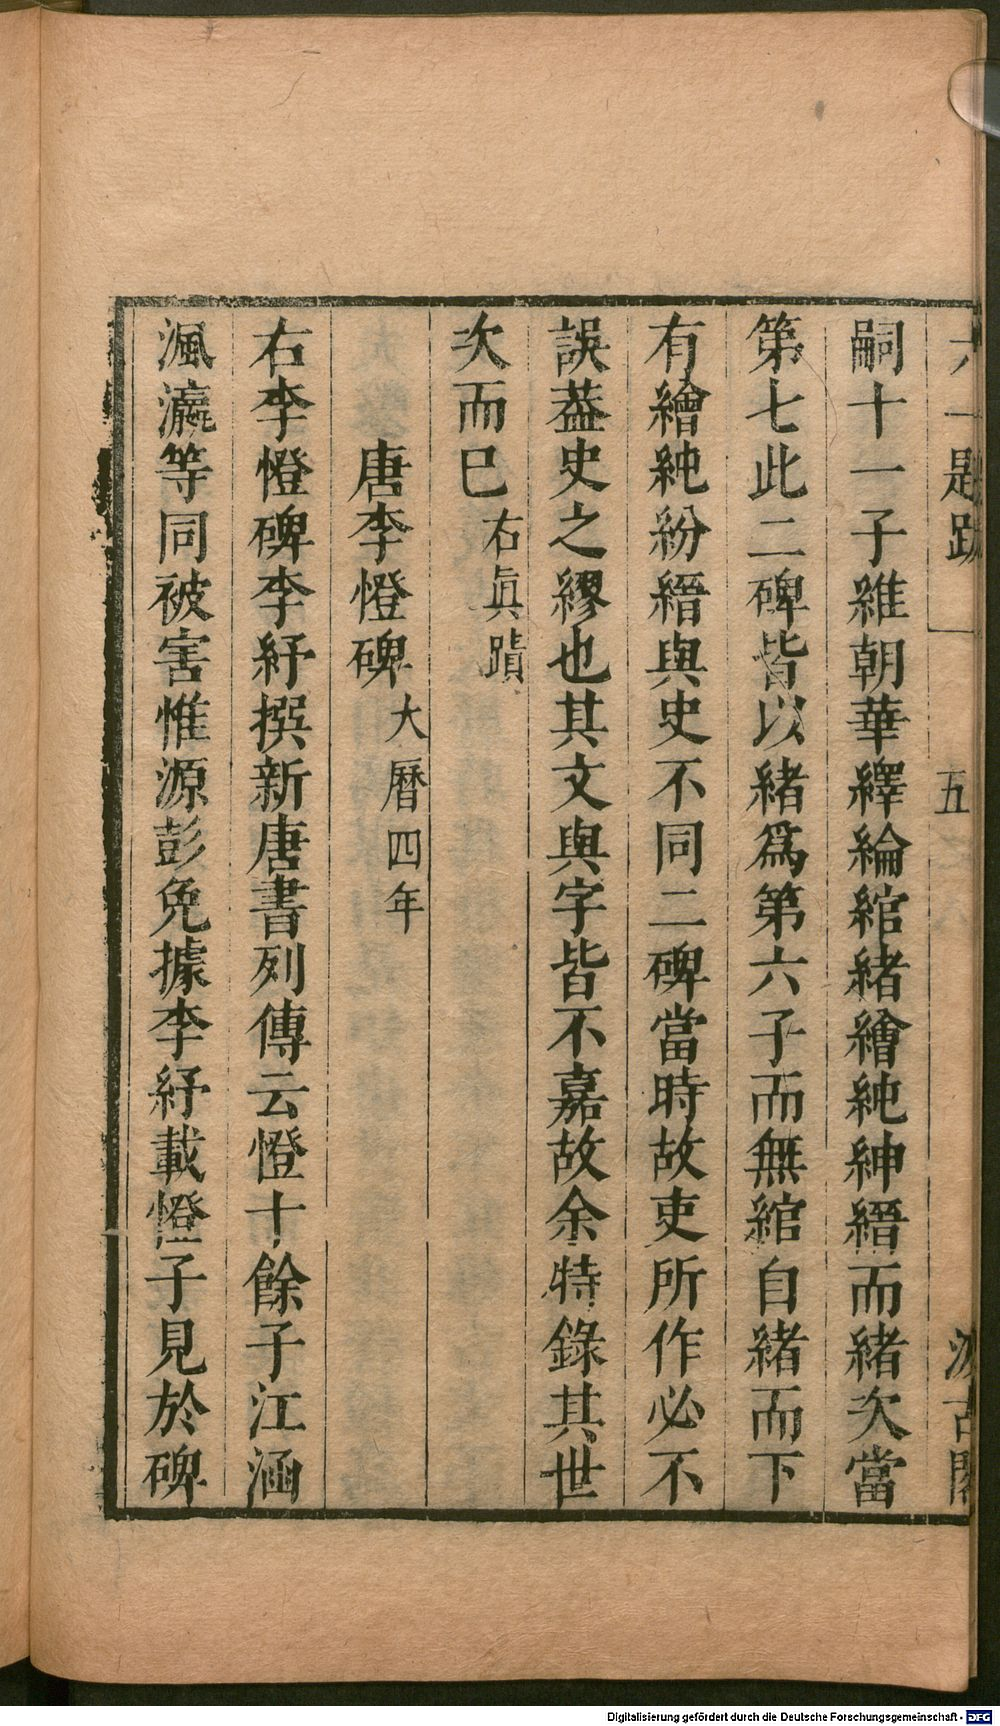 六一題跋 五 汲古閣
嗣十一子雖朝華繹綸綰緒繪純紳縉而緒次當
第七此二碑皆以緒爲第六子而無綰自緒而下
有繪純紛縉與史不同二碑當時故吏所作必不
誤葢史之繆也其文與字皆不嘉故余特錄其世
次而巳右眞蹟
唐李憕碑大曆四年
右李憕碑李紓撰新唐書列傳云憕十餘子江涵
渢瀛等同被害惟源彭免據李紓載憕子見於碑
Digitalisierung gefördert durch die Deutsche Forschungsgemeinschaft - DFG